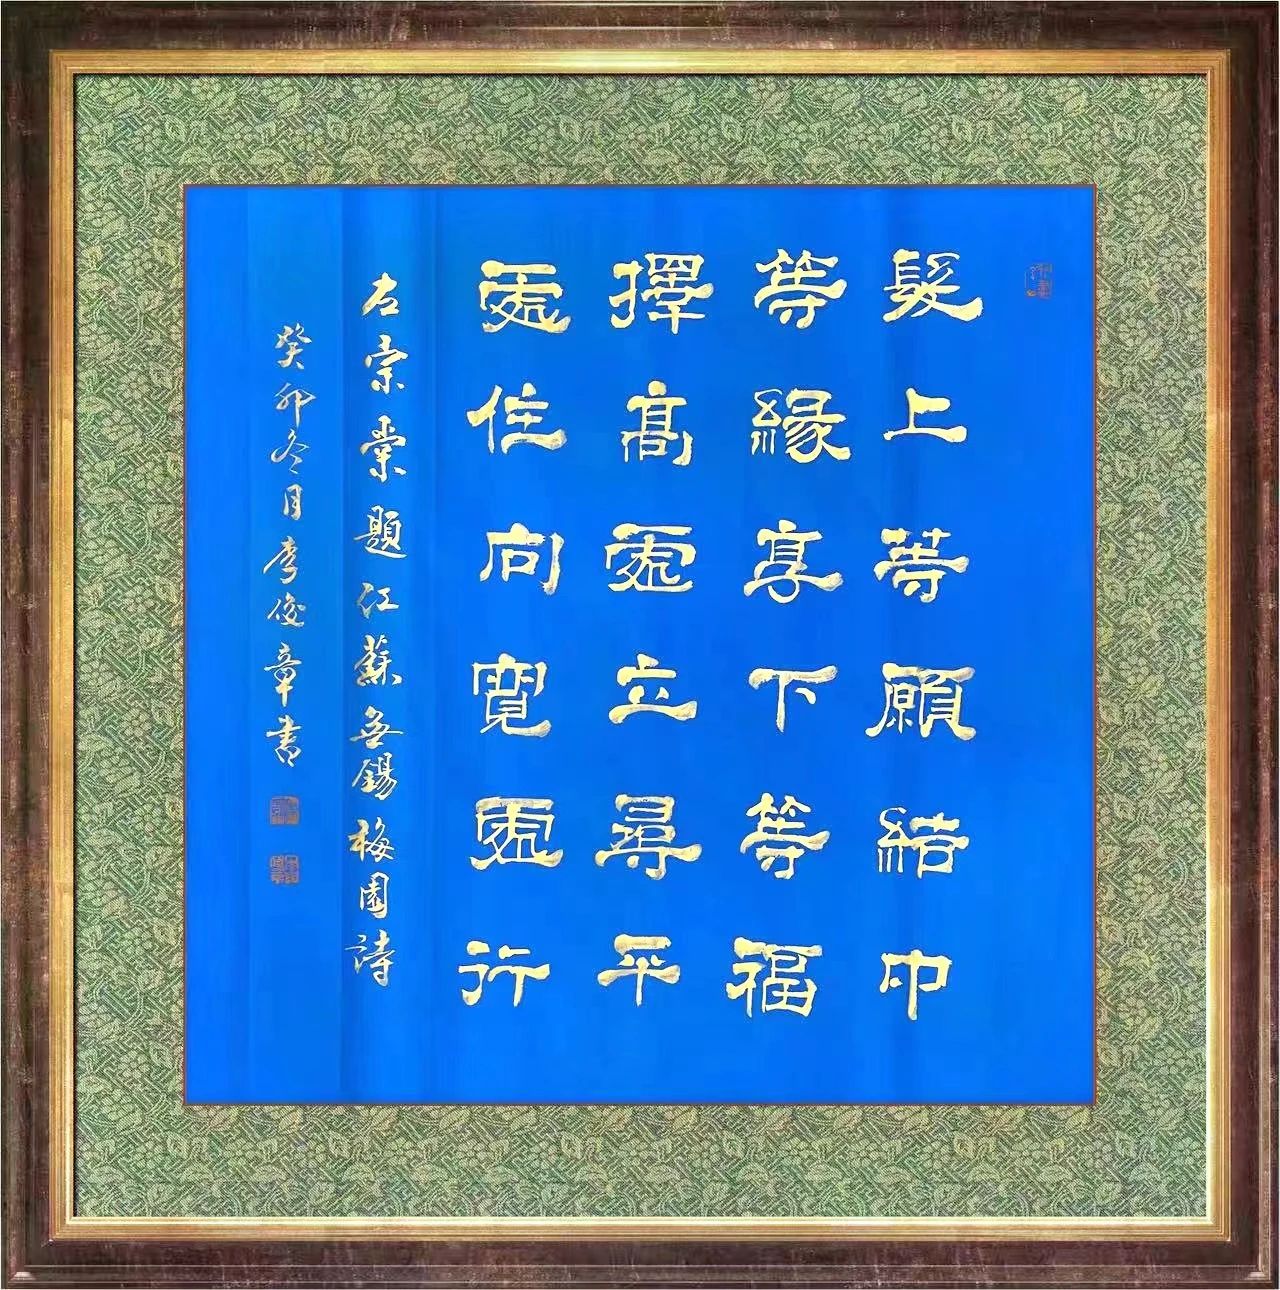 髮上等願結中
等緣享下等福
擇高處立尋平
處住向寬處行
左宗棠題江蘇無錫梅園詩
癸卯冬月李俊章書